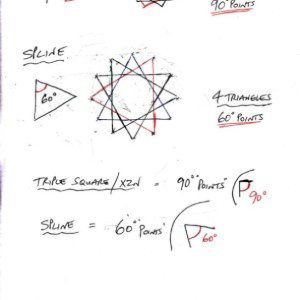 90° POINTS
SPLINE
60°
4 TRIANGLES
60° POINTS
TRIPLE SQUARE/XZN = 90° "POINTS" 90°
SPLINE = 60° "POINTS" 60°